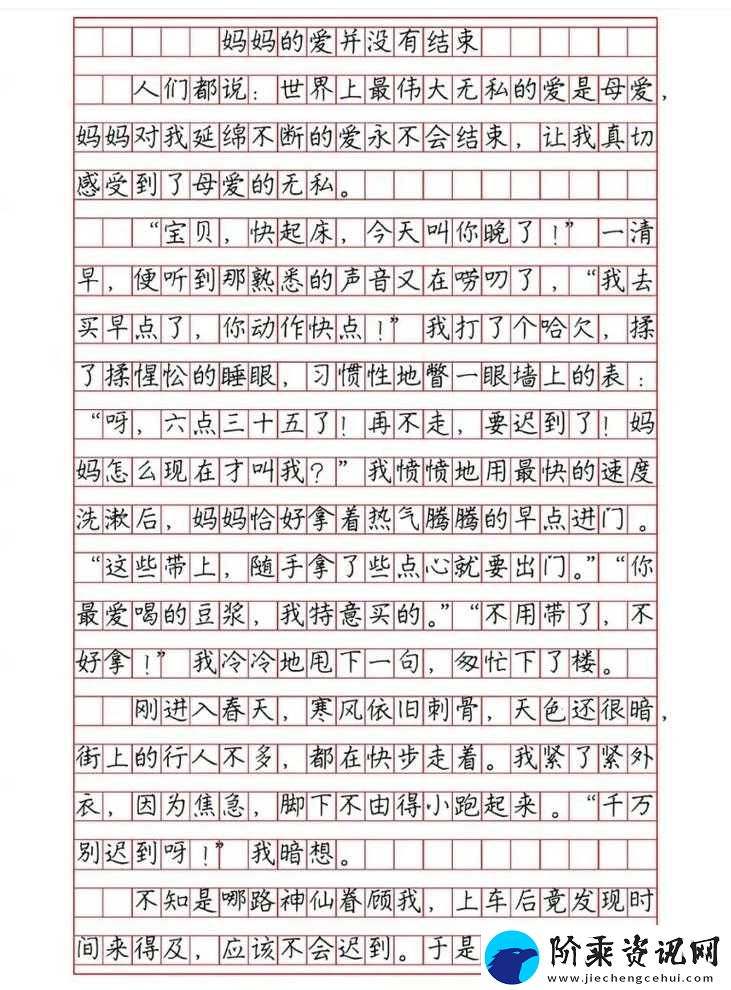 妈妈的爱并没有结束
人们都说：世界上最伟大无私的爱是母爱，
妈妈对我延绵不断的爱永不会结束，让我真切
感受到了母爱的无私。
“宝贝，快起床，今天叫你晚了！”一清
早，便听到那熟悉的声音又在唠叨了，“我去
买早点了，你动作快点！”我打了个哈欠，揉
了揉惺忪的睡眼，习惯性地瞥一眼墙上的表：
“呀，六点三十五了！再不走，要迟到了！妈
妈怎么现在才叫我？”我愤愤地用最快的速度
洗漱后，妈妈恰好拿着热气腾腾的早点进门。
“这些带上，随手拿了些点心就要出门。”“你
最爱喝的豆浆，我特意买的。”“不用带了，不
好拿！”我冷冷地甩下一句，匆忙下了楼。
刚进入春天，寒风依旧刺骨，天色还很暗，
街上的行人不多，都在快步走着。我紧了紧外
衣，因为焦急，脚下不由得小跑起来。“千万
别迟到呀！”我暗想。
不知是哪路神仙眷顾我，上车后竟发现时
间来得及，应该不会迟到。于是
阶乘资讯网
www.jiechengcehui.com